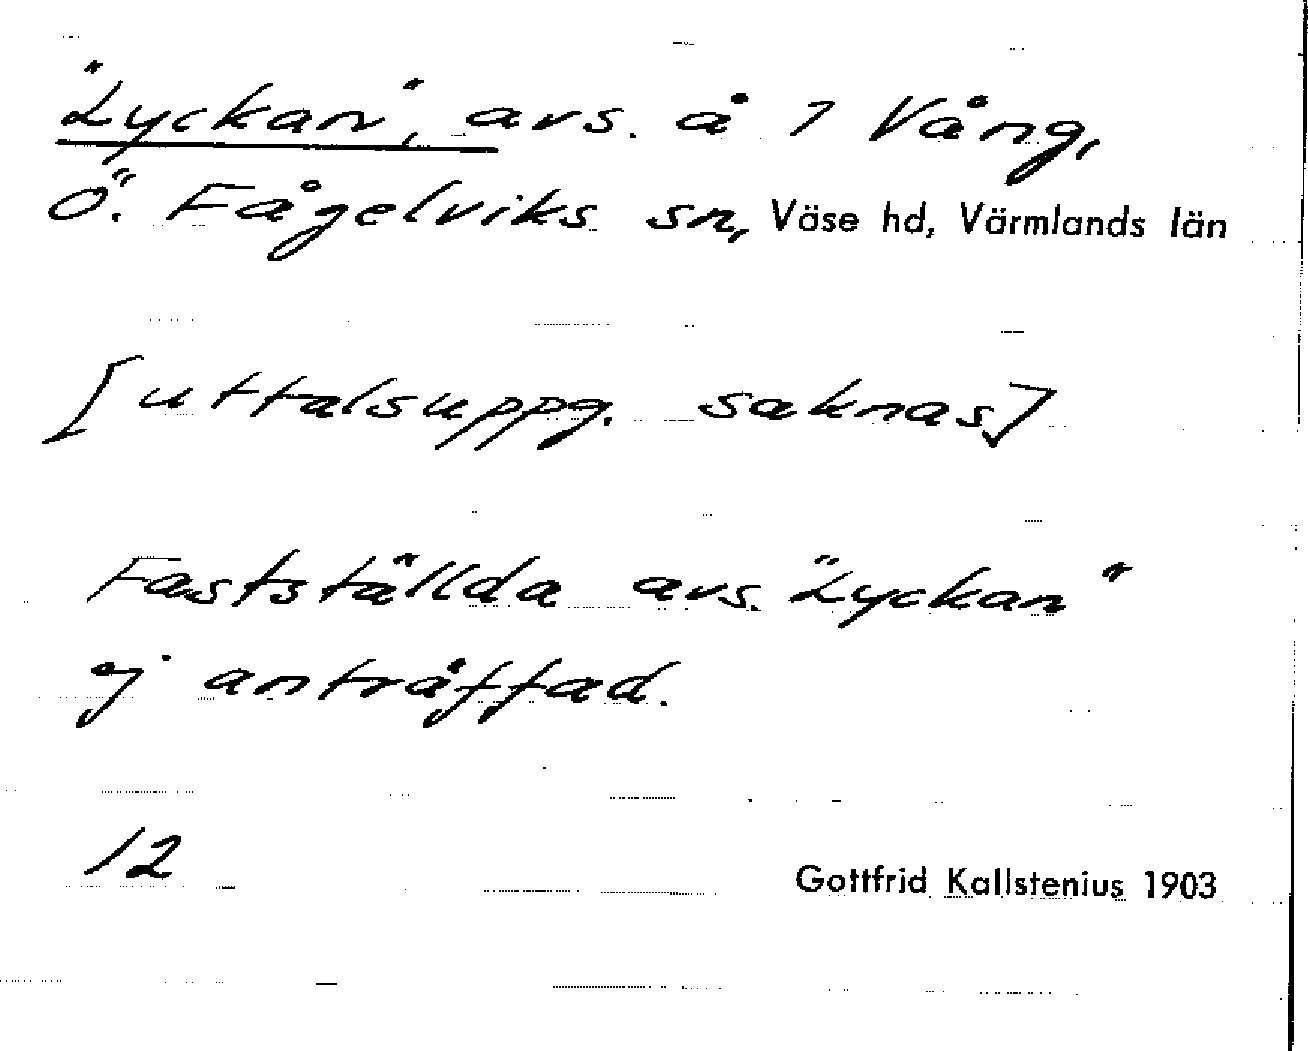 "Lyckan", avs. å 1 Vång,
Ö. Fågelviks sn, Väse hd, Värmlands län
[uttalsuppg. saknas]
Fastställda avs. "Lyckan"
ej anträffad.
12
Gottfrid Kallstenius 1903